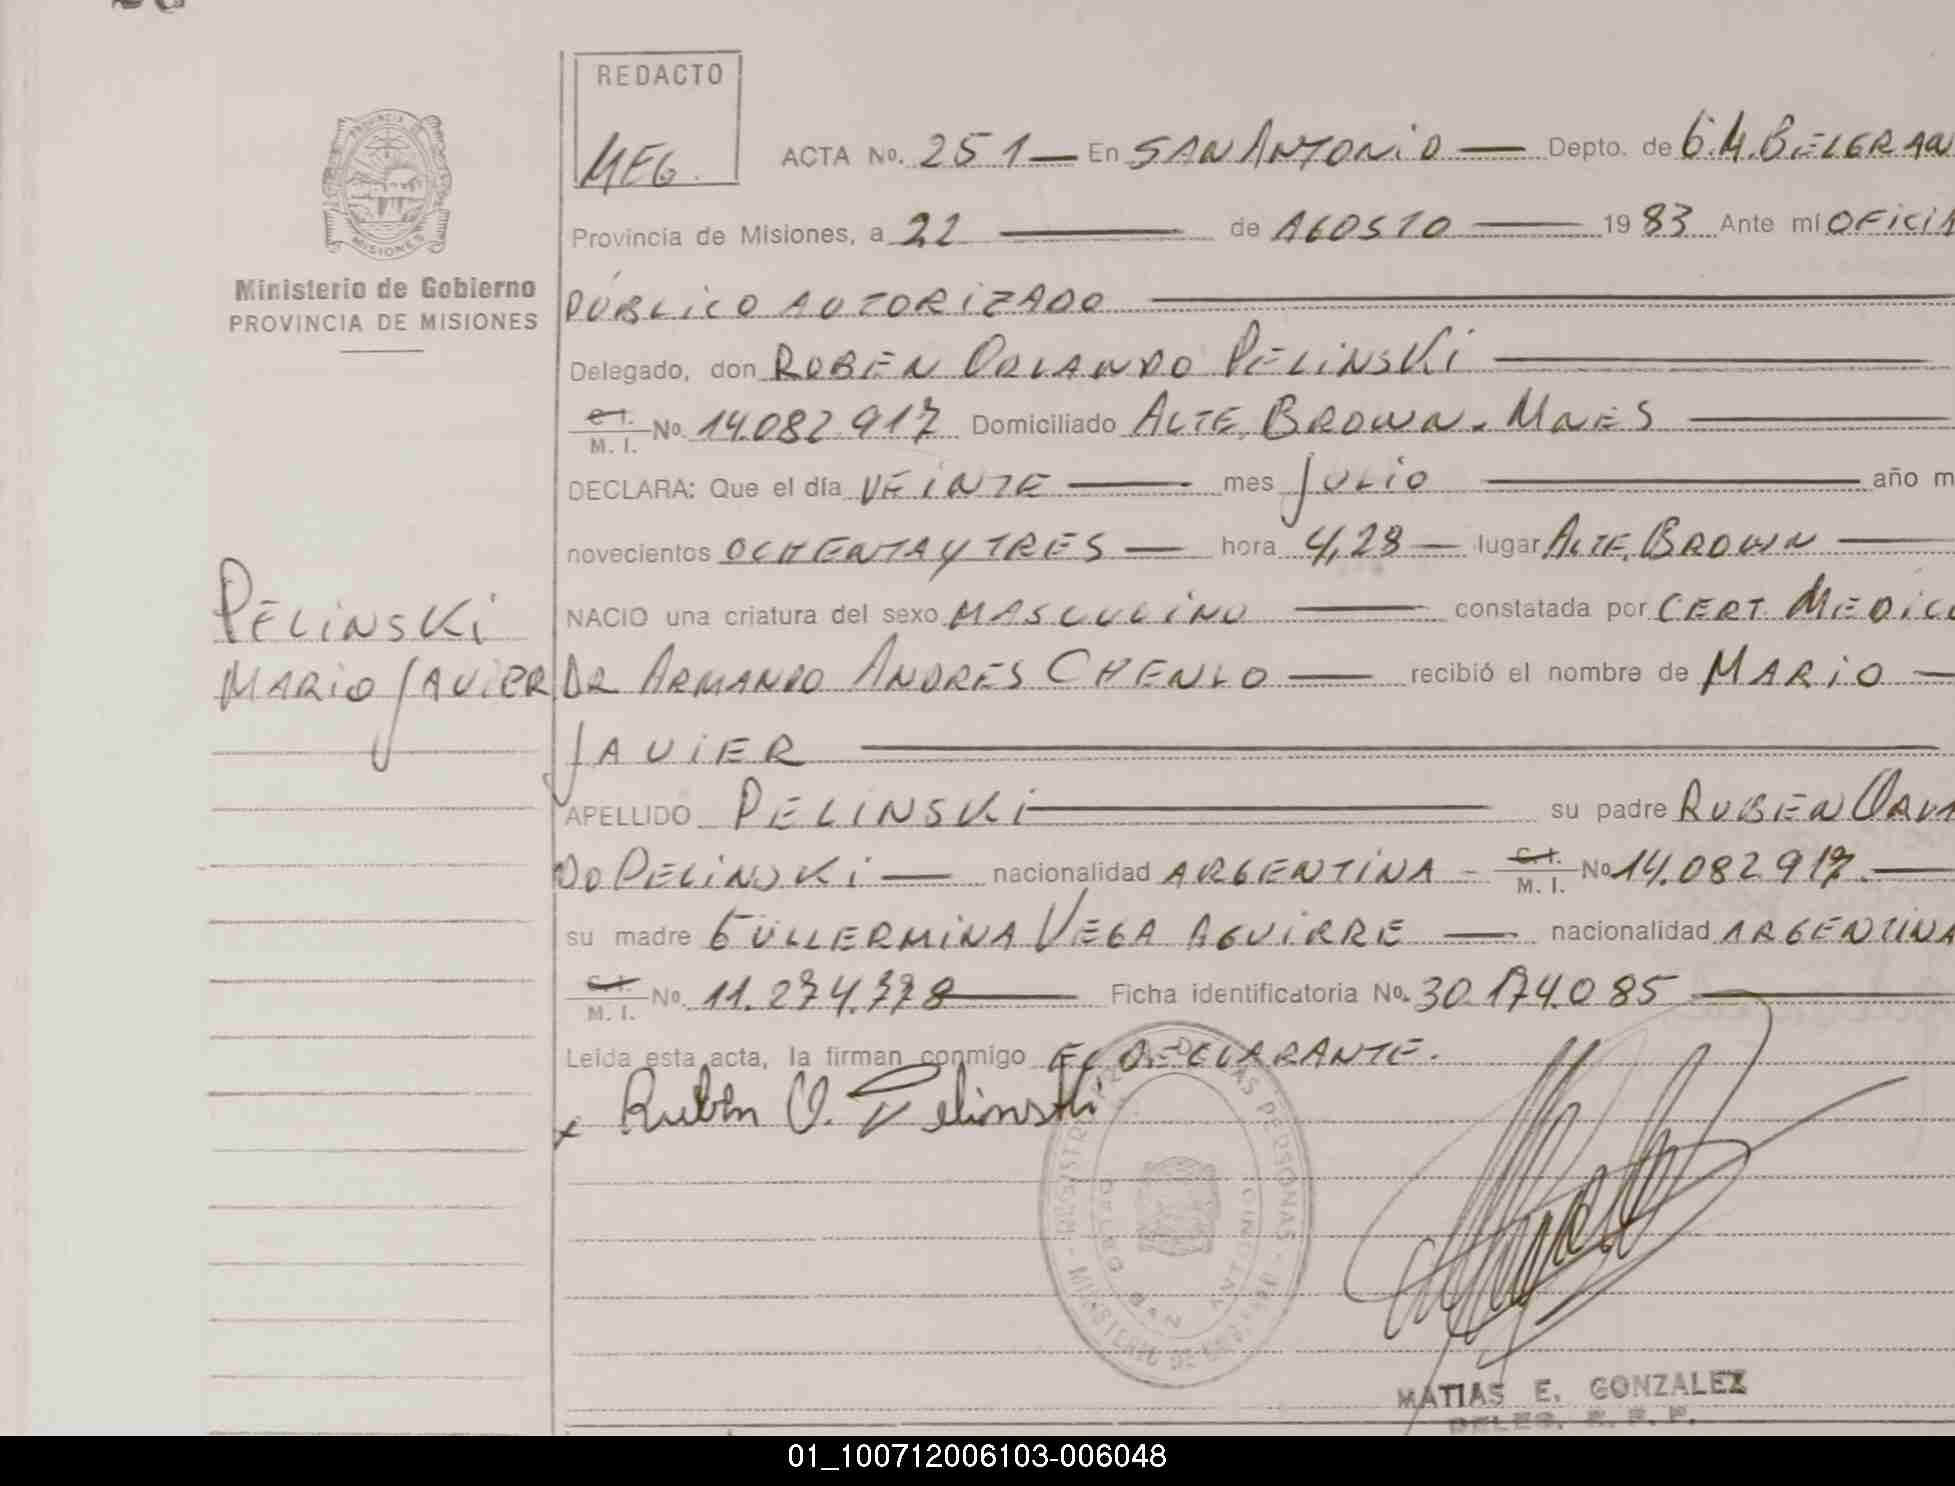 REDACTO
MEG.
ACTA No. 251 — En SAN ANTONIO — Depto. de G.M. BELGRAN
PROVINCIA DE
MISIONES
Provincia de Misiones, a 22 — de AGOSTO — 1983 Ante mí OFICIA
Ministerio de Gobierno
PROVINCIA DE MISIONES
PÚBLICO AUTORIZADO —
Delegado, don RUBEN ORLANDO PELINSKI —
C.I. M. I. No. 14.082.917 Domiciliado ALTE. BROWN - MNES —
DECLARA: Que el día VEINTE — mes JULIO — año m
novecientos OCHENTA Y TRES — hora 4,28 — lugar ALTE. BROWN —
NACIO una criatura del sexo MASCULINO — constatada por CERT. MEDICO
PELINSKI
MARIO JAVIER
DR ARMANDO ANDRES CHENLO — recibió el nombre de MARIO —
JAVIER —
APELLIDO PELINSKI — su padre RUBEN ORLAN
DO PELINSKI — nacionalidad ARGENTINA - C.I. M. I. No 14.082.917. —
su madre GUILLERMINA VEGA AGUIRRE — nacionalidad ARGENTINA
C.I. M. I. No. 11.274.778 — Ficha identificatoria No. 30.174.085 —
Leída esta acta, la firman conmigo EL DECLARANTE.
x Ruben O. Pelinski
REGISTRO DE LAS PERSONAS - MINISTERIO DE GOBIERNO
SAN ANTONIO
MATIAS E. GONZALEZ
DELEG. R. P. P.
01_100712006103-006048